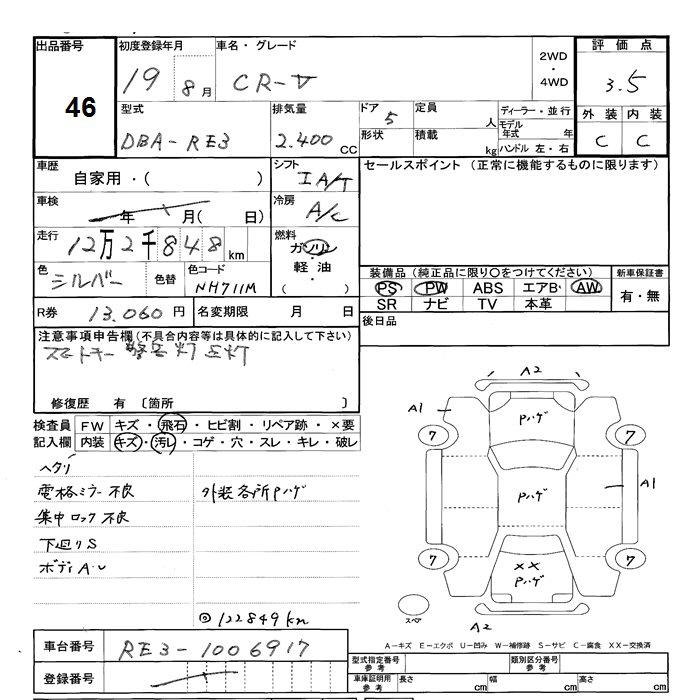 出品番号 初度登録年月 車名・グレード 2WD ・ 4WD 評価点
46 19 8月 CR-V 3.5
型式 排気量 ドア 定員 ディーラー・並行 外装 内装
DBA-RE3 2.400 CC 5 人 モデル年式 年 C C
形状 積載 kg ハンドル 左・右
車歴 シフト セールスポイント (正常に機能するものに限ります)
自家用・( ) IA/T
車検 年 月( 日) 冷房 A/C
走行 12万2千848km 燃料 ガソリン・軽油・( )
色 シルバー 色替 色コード NH711M
装備品 (純正品に限り○をつけてください) 新車保証書
PS PW ABS エアB AW 有・無
SR ナビ TV 本革
R券 13.060円 名変期限 月 日 後日品
注意事項申告欄 (不具合内容等は具体的に記入して下さい)
スマートキー 警告灯 点灯
修復歴 有 〔箇所 〕
検査員記入欄 FW キズ・飛石・ヒビ割・リペア跡・×要
内装 キズ・汚レ・コゲ・穴・スレ・キレ・破レ
ヘタリ
電格ミラー不良 外装各所Pハゲ
集中ロック不良
下廻りS
ボディA・U
◎122849km
A2
A1 Pハゲ
7 7
Pハゲ A1
7 7
XX
Pハゲ
スペア A2
A-キズ E-エクボ U-凹み W-補修跡 S-サビ C-腐食 XX-交換済
車台番号 RE3-1006917
型式指定番号 参考 類別区分番号 参考
登録番号
車庫証明用 参考 長さ cm 幅 cm 高さ cm